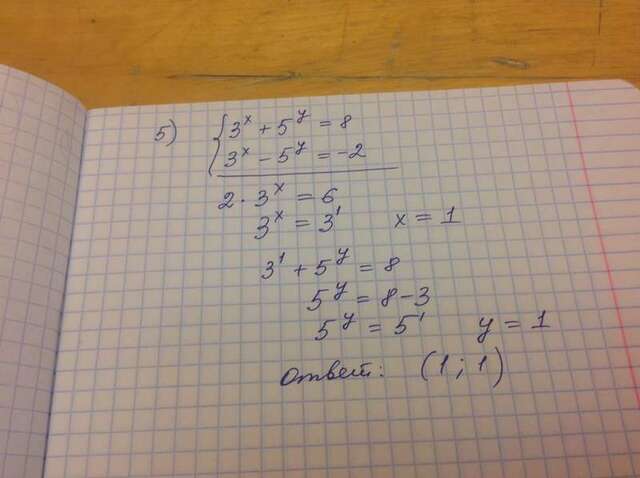 5) { 3^x + 5^y = 8
3^x - 5^y = -2
2 · 3^x = 6
3^x = 3^1 x = 1
3^1 + 5^y = 8
5^y = 8 - 3
5^y = 5^1 y = 1
Ответ: (1; 1)